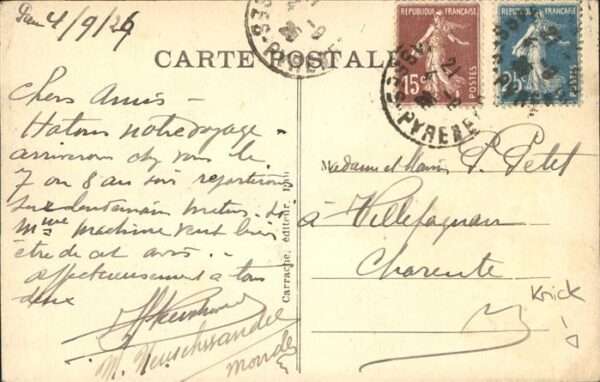 Pau 4/9/26
CARTE POSTALE
REPUBLIQUE FRANÇAISE
15c
POSTES
REPUBLIQUE FRANÇAISE
25c
POSTES
Chers Amis -
Hatons notre voyage -
arriverons chez vous le
7 ou 8 au soir repartirons
lendemain matin. Si
Mme Machine veut bien
être de cet avis. -
affectueusement à tous
deux
Carrache, éditeur, Pau
Madame et P. Petit
à Villefagnan
Charente
Knick